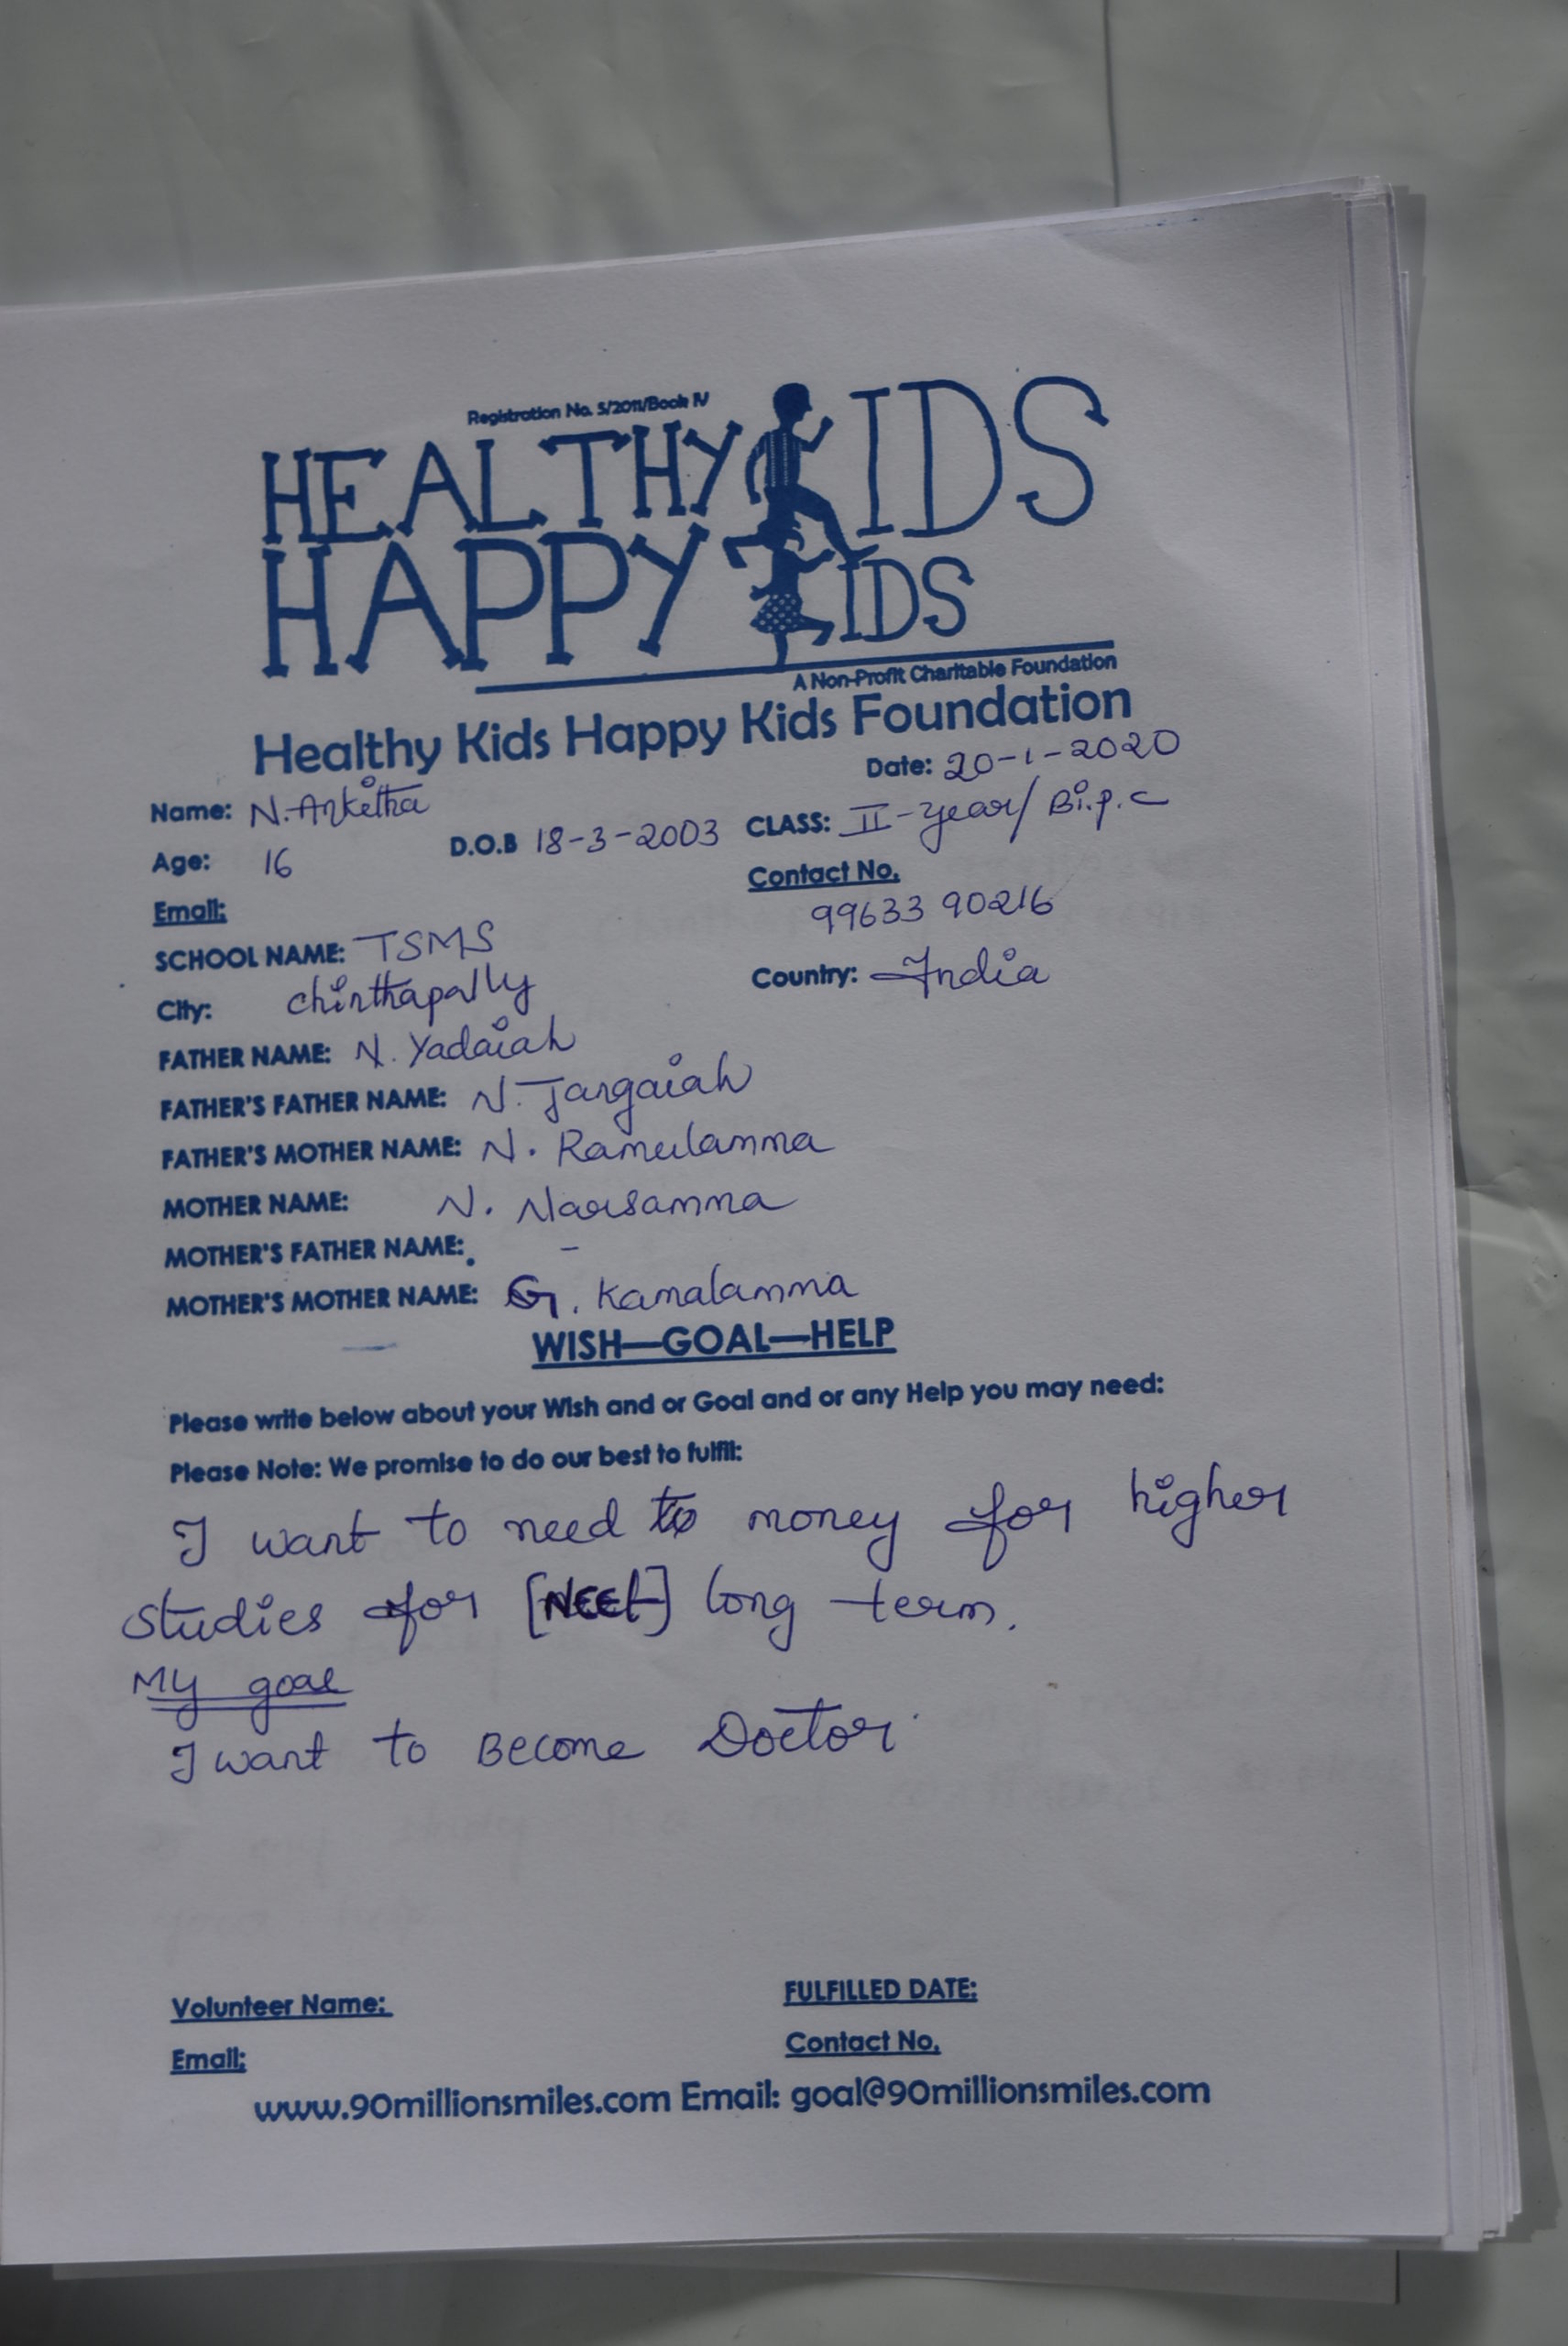 Registration No. 5/2011/Book IV
HEALTHY KIDS
HAPPY KIDS
A Non-Profit Charitable Foundation
Healthy Kids Happy Kids Foundation
Date: 20-1-2020
Name: N. Ankitha
Age: 16 D.O.B 18-3-2003 CLASS: II-year/ Bi.p.c
Email: Contact No.
99633 90216
SCHOOL NAME: TSMS
City: Chinthapally Country: India
FATHER NAME: N. Yadaiah
FATHER'S FATHER NAME: N. Jangaiah
FATHER'S MOTHER NAME: N. Ramulamma
MOTHER NAME: N. Narsamma
MOTHER'S FATHER NAME: -
MOTHER'S MOTHER NAME: G. Kamalamma
WISH—GOAL—HELP
Please write below about your Wish and or Goal and or any Help you may need:
Please Note: We promise to do our best to fulfil:
I want to need to money for higher
studies for [NEET] long term.
My goal
I want to Become Doctor.
Volunteer Name: FULFILLED DATE:
Email: Contact No.
www.90millionsmiles.com Email: goal@90millionsmiles.com